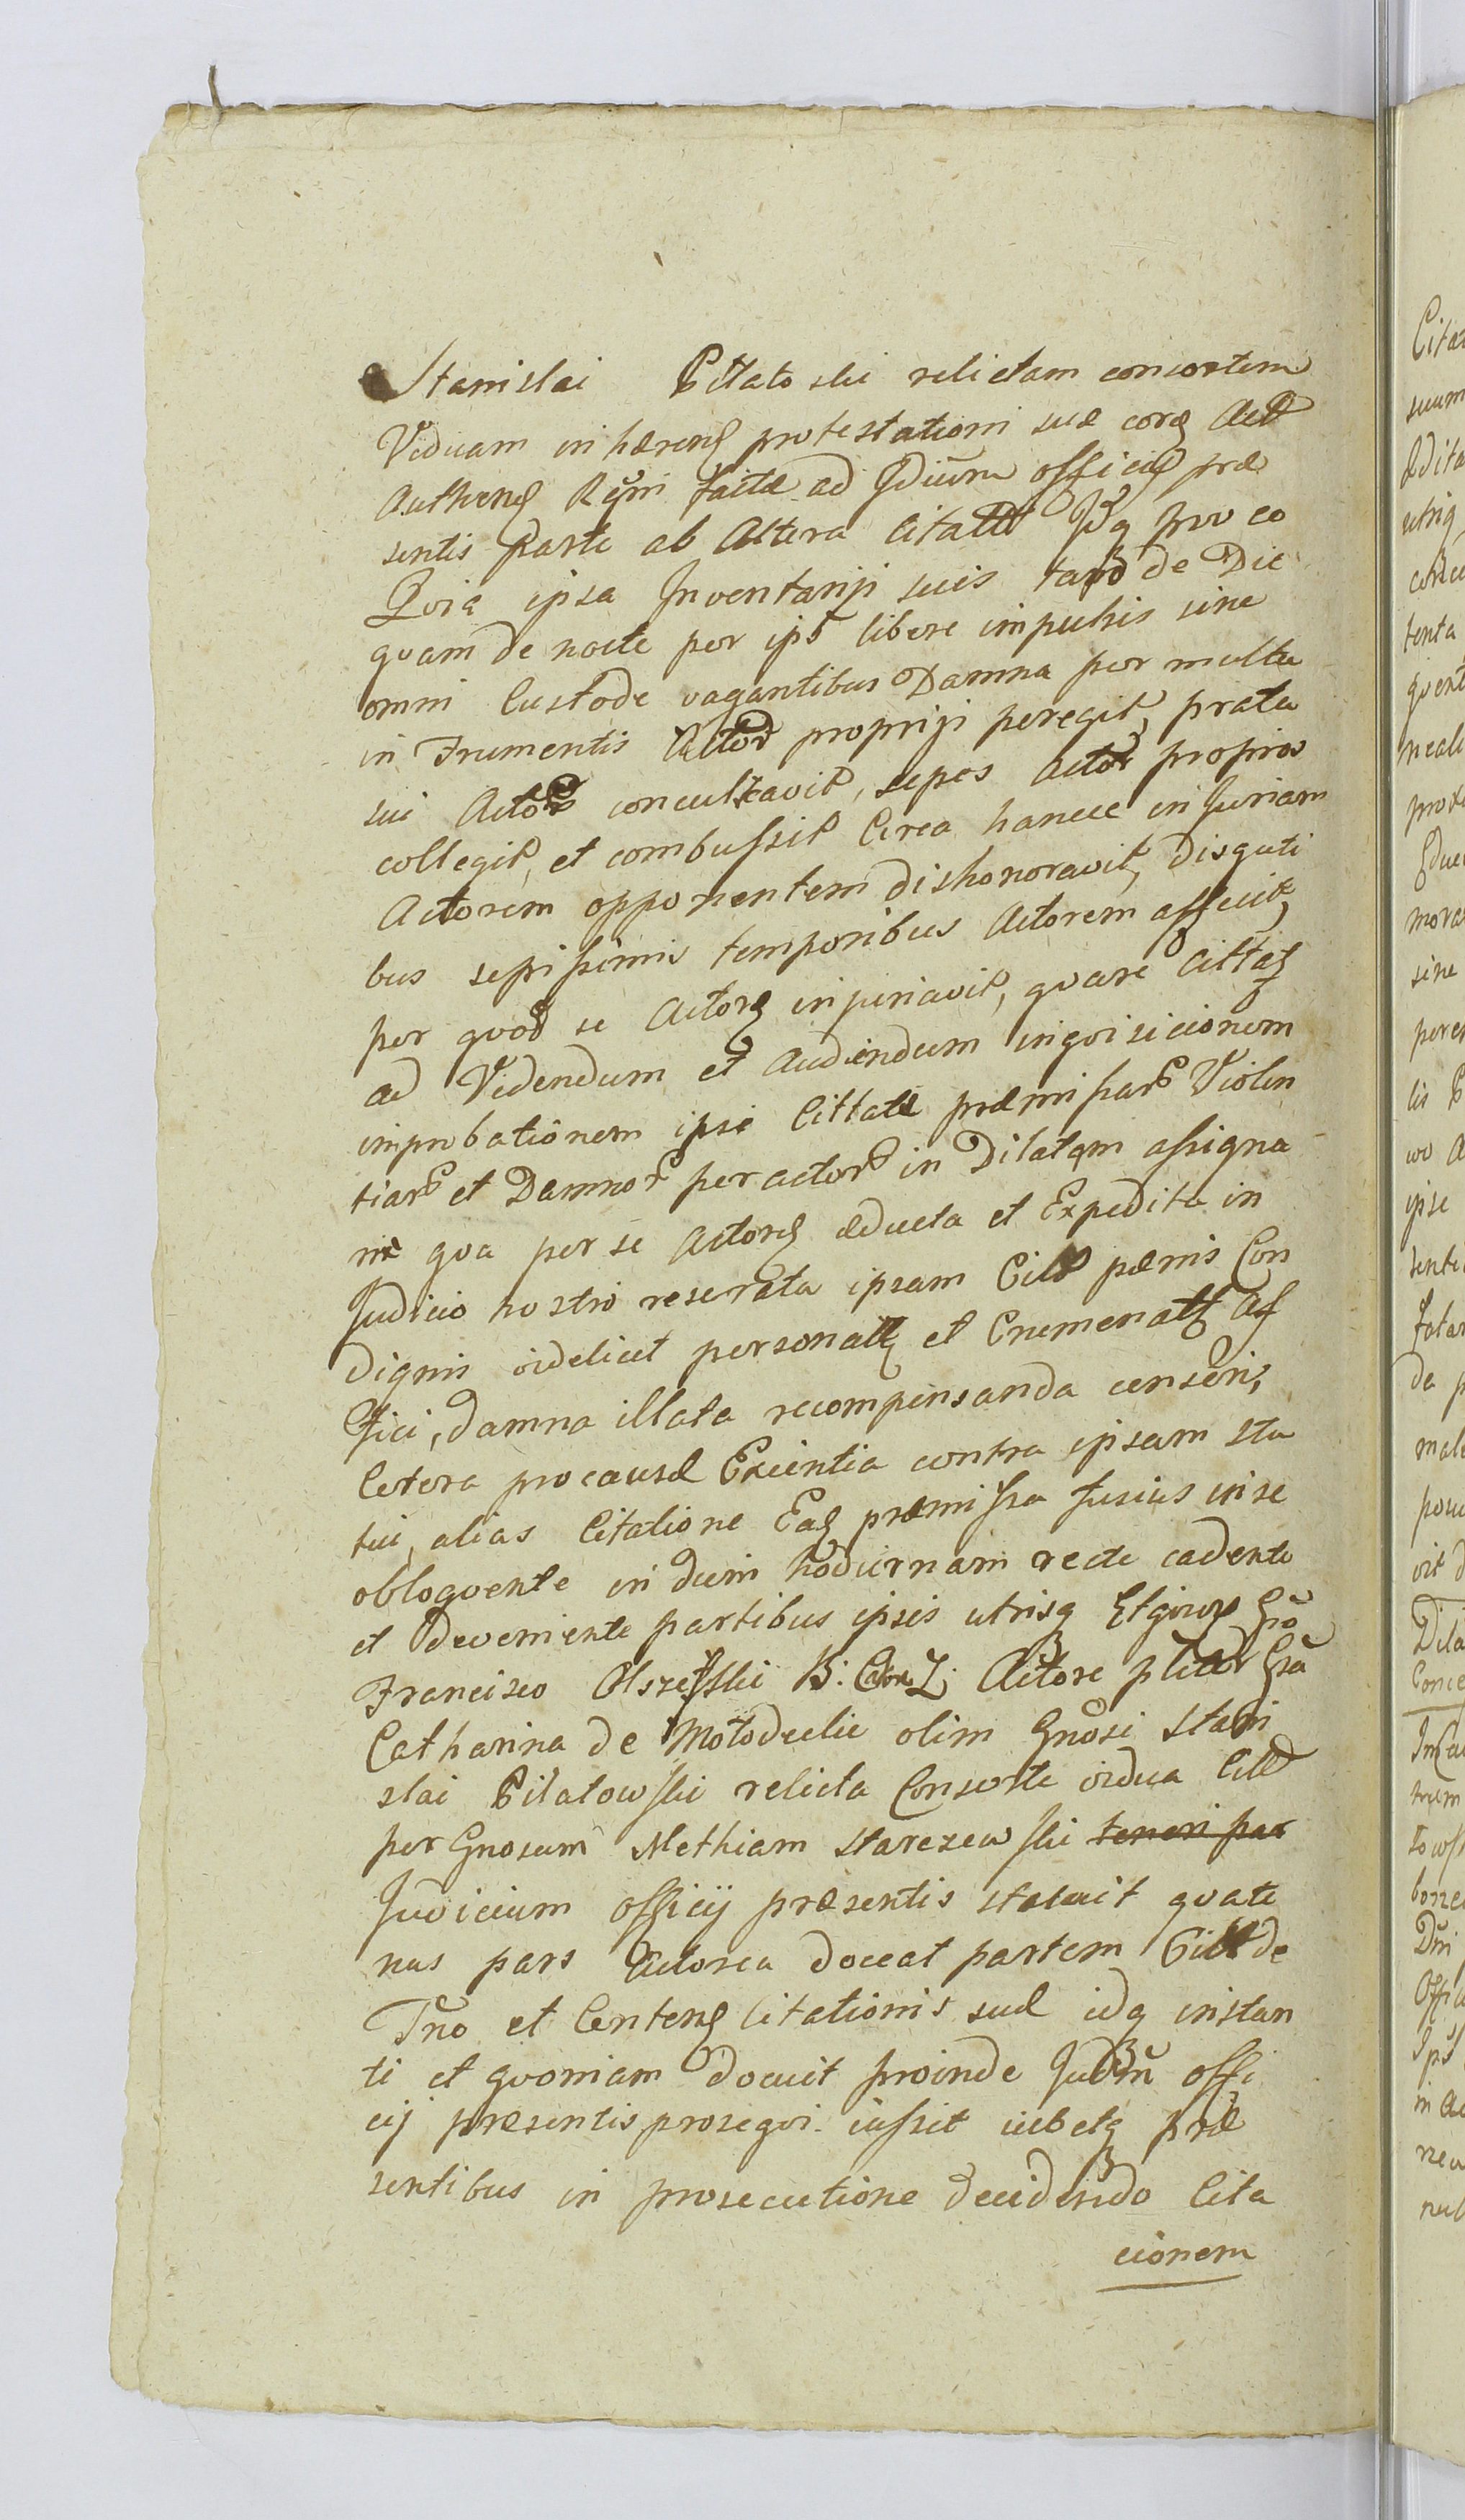 Stanislai Pilato ski relictam consortem
Viduam inhærenȩ protestationi suæ corȩ Act
Authenȩ Regni factæ ad Jdium officiȩ præ
sentis Parte ab Altera Citatæ pro eo
Quia ipsa Inventarÿi suis tam de Die
quam de nocte per ips libere impulsis sine
omni Custode vagantibus Damna per multa
in Frumentis Actor proprÿi peregit, prata
sui Actor conculcavit, sepes Actor proprias
collegit, et combussit Circa hancce injuriam
Actorem opponentem dishonoravit, disguti
bus sepissimis temporibus Actorem affecit,
per quod se Actorȩ injuriavit, quare Cittatȩ
ad Videndum et Audiendum inquisicionem
improbationem ipsi Cittatæ præmissar Violen
tiar et Damnor peractor in Dilatam assigna
ne qua per se Actorȩ educta et Expedita in
Judicio nostro reserata ipsam Citt pænis Con
dignis videlicet personalȩ et Crumenalȩ Af
fici, damna illata recompensanda censeri,
Cetera pro causæ Exientia contra ipsam sta
tui, alias Citatione Eaȩ præmissa fusius in se
obloquente in diem hodiernam recte cadente
et deveniente partibus ipsis utrisq
Francisco Olszewski B: Z: Actore
Catharina de Motodeckie olim Gnosi Stani
slai Pilatowski relicta Consorte vidua Citt
per Gnosum Mathiam Starczewski teneri par
Judicium officij præsentis statuit quate
nus pars Actorea doceat partem Citt de
Tno et Contenȩ Citationis suæ idq instan
ti et quoniam docuit proinde Judium offi
cij præsentis prosequi iussit iubetq præ
sentibus in prosecutione decidendo Cita
cionem